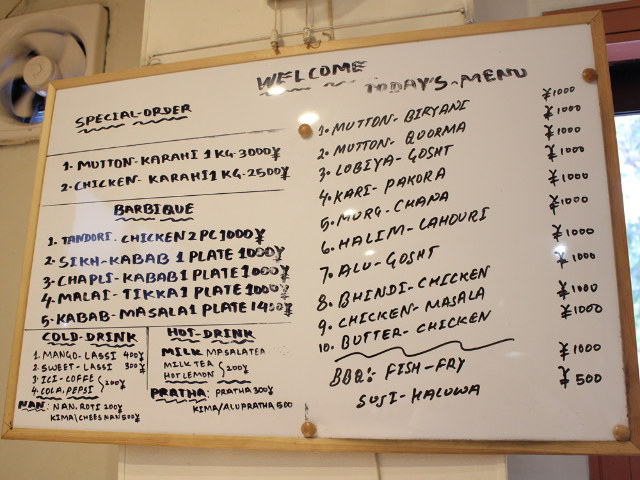 WELCOME
TODAY'S-MENU
SPECIAL-ORDER
1- MUTTON-KARAHI 1 KG-3000¥
2- CHICKEN- KARAHI 1 KG-2500¥
BARBIQUE
1- TANDORI- CHICKEN 2 PC 1000¥
2- SIKH-KABAB 1 PLATE 1000¥
3- CHAPLI-KABAB 1 PLATE 1000¥
4- MALAI-TIKKA 1 PLATE 1000¥
5- KABAB-MASALA 1 PLATE
COLD-DRINK
1. MANGO-LASSI 400¥
2. SWEET-LASSI 300¥
3. ICI-COFFE
4. COLA, PEPSI } 200¥
NAN: NAN, ROTI 200¥
KIMA\CHEES NAN 500¥
HOT-DRINK
MILK MASALATEA
MILK TEA
HOT LEMON } 200¥
PRATHA: PRATHA 300¥
KIMA/ALU PRATHA, 500
1- MUTTON-BIRYANI ¥1000
2- MUTTON-QUORMA ¥1000
3- LOBIYA-GOSHT ¥1000
4- KARI-PAKORA ¥1000
5- MURG-CHANA ¥1000
6- HALIM-LAHOURI ¥1000
7- ALU-GOSHT ¥1000
8- BHINDI-CHICKEN ¥1000
9- CHICKEN-MASALA ¥1000
10- BUTTER-CHICKEN ¥1000
BBQ: FISH-FRY ¥1000
SUSI-HALUWA ¥500